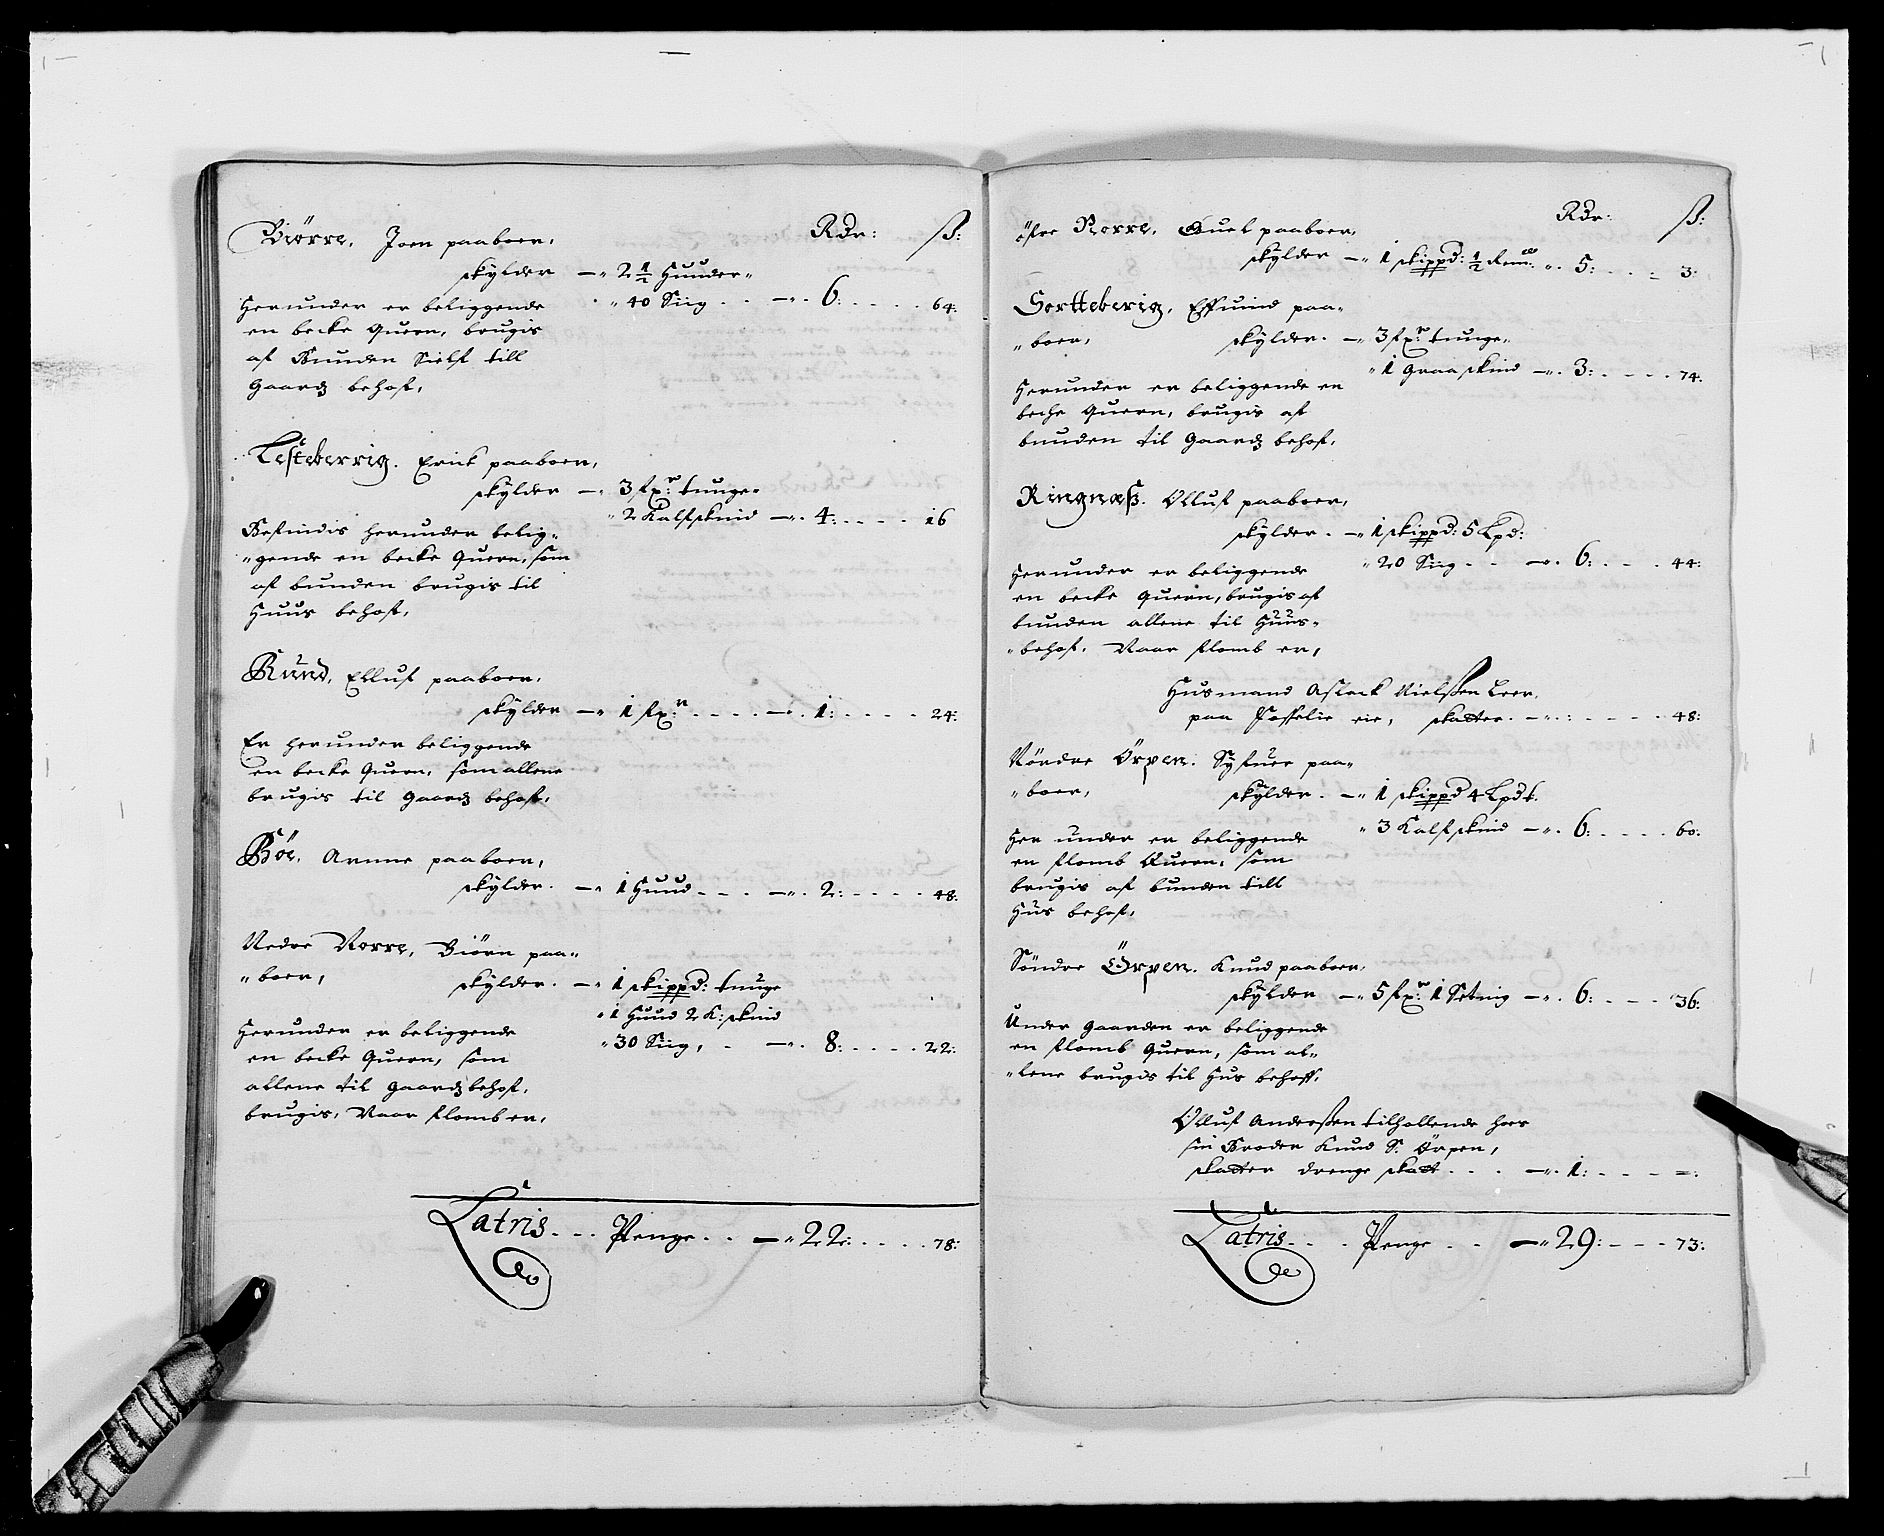 Rdr: ß:
Biörre, Joen paaboer,
skylder — 2 1/2 Huuder
Herunder er beliggende
40 Siig — 6: 64:
en becke Quern, brugis
af Bunden Sielf till
Gaardz behof,
Lesteberrig. Erick paaboer,
skylder — 3 fxr: tunge
2 Kalfskind — 4: 16
Befindis herunder belig-
gende en becke Quern, som
af bunden brugis til
Huus behof,
Rund, Elluf paaboer,
skylder — 1 fxr: — 1: 24:
Er herunder beliggende
en becke Quern, som allene
brugis til Gaardz behof,
Böe, Arnne paaboer,
skylder. — 1 Huud — 2: 48.
Nedre Norre, Biörn paa-
boer, skylder. — 1 skippd: tunge
1 Huud 2 K: skind
Herunder er beliggende
30 Siig, — 8: 22:
en becke Quern, som
allene til Gaardz behof,
brugis, Naar flomb er,
Latris Penge — 22: 78:
Rdr: ß:
öfre Norre, paaboer,
skylder — 1 skippd: 1/2 5: 3:
Sortteberig, Effuind paa-
boer, skylder. — 3 fxr: tunge
1 Graaskind — 3: 74.
Herunder er beliggende en
beche Quern, brugis af
bunden til Gaardz behof,
Ringnæß. Olluf paaboer,
skylder. — 1 skippd: 5 Lpd:
20 Siig — 6: 44:
Herunder er beliggende
en becke Quern, brugis af
bunden allene til Huus-
behof. Naar flomb er,
Husmand Aslack Nielßen Leer,
paa Fosselie eie, skatter. — 48:
Nördre Örpen. Syfuer paa-
boer, skylder. — 1 skippd 4 Lpdt.
3 Kalfskind — 6: 60:
Her under er beliggende
en flomb Quern, som
brugis af bunden till
Hus behof,
Söndre Örpen. Knud paaboer,
skylder — 5 fxr: 1 Setnig — 6: 36:
Under Gaarden er beliggende
en flomb Quern, som al-
lene brugis til Hus behoff,
Olluf Anderßen tilhollende hoes
sin Broder Knud S: Örpen,
skatter drenge skatt — 1: =:
Latris Penge — 29: 73: